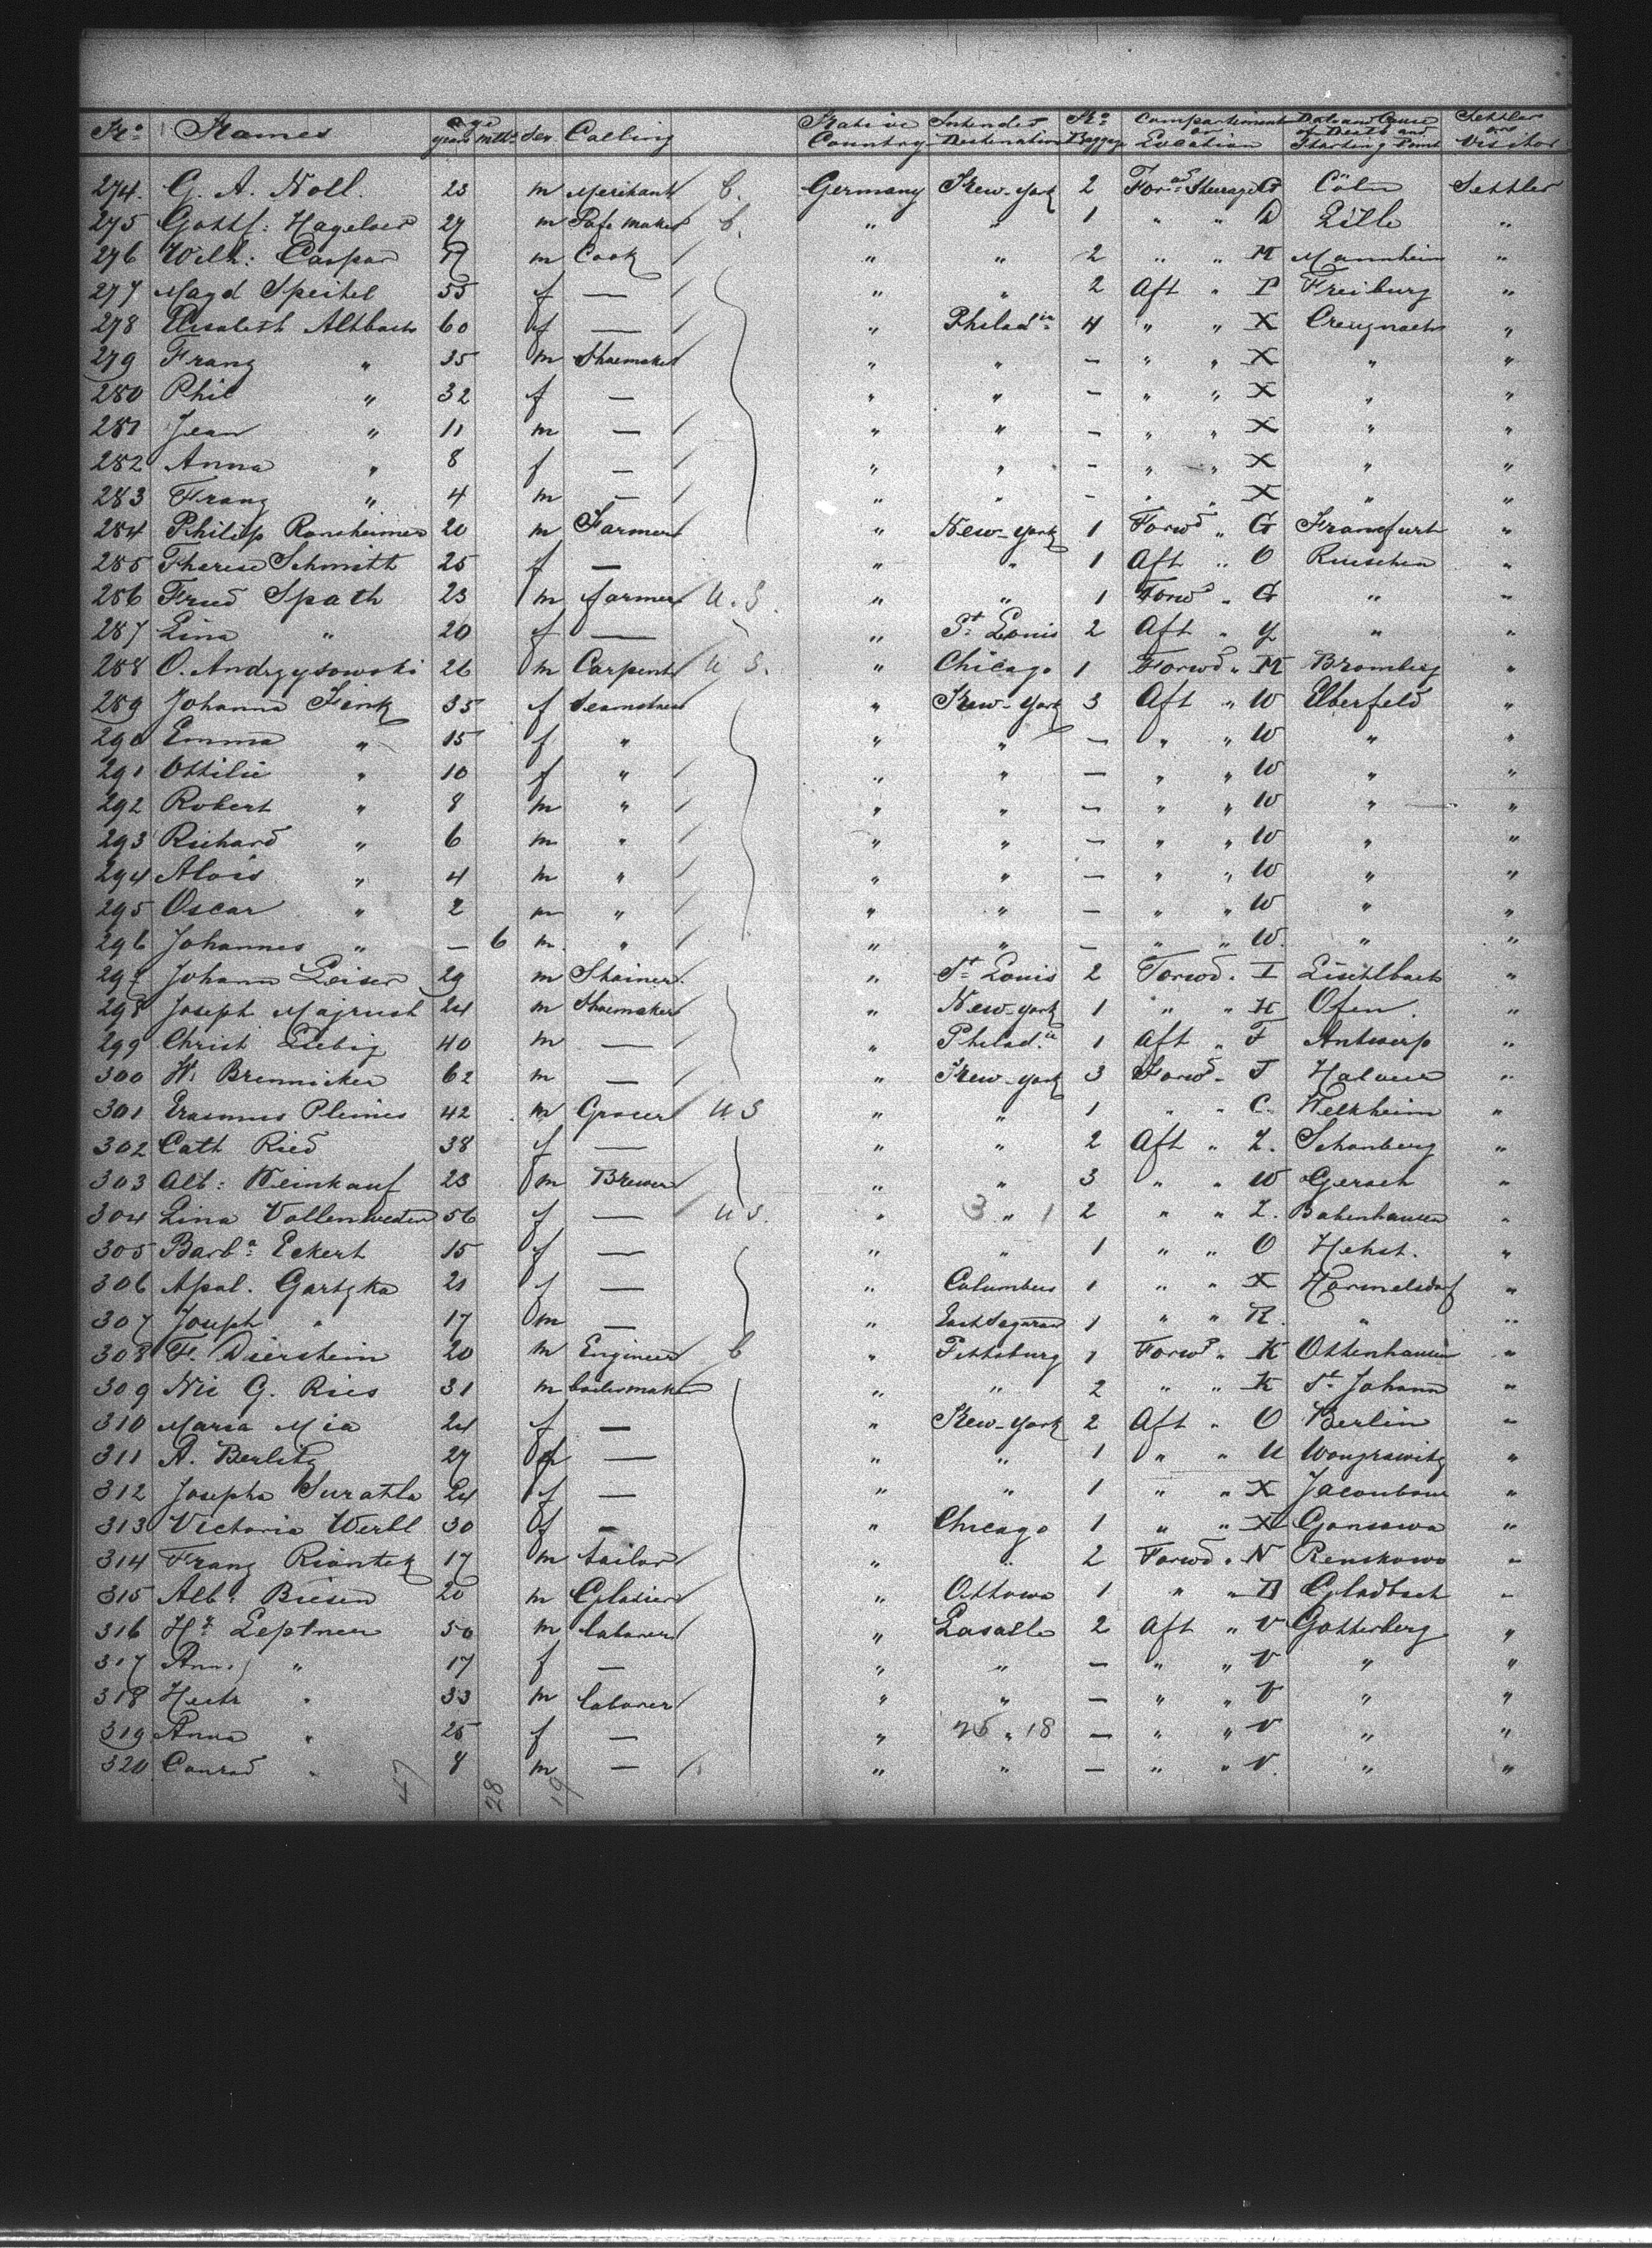 No. Names age years mths Sex Calling Native Country Intended Destination No. Baggage Compartment or Location Date and Cause of Death and Starting Point Settler or Visitor
274. G. A. Noll. 23 m Merchant C. Germany New-York 2 Forwd Steerage G Cöln Settler
275 Gottf: 29 m Safe maker C. " " 1 " " D Zülle "
276 Wilh: Caspar m Cook " " 2 " " M Mannheim "
277 Magd Speitel 55 f — " " 2 Aft " P Freiburg "
278 Elisabeth Altbach 60 f — " Philadia 4 " " X Creuznach "
279 Franz " 35 m Shoemaker " " — " " X " "
280 Phil " 32 f — " " — " " X " "
281 Jean " 11 m — " " — " " X " "
282 Anna " 8 f — " " — " " X " "
283 Franz " 4 m — " " — " " X " "
284 Philip Ronsheimer 20 m Farmer " New-York 1 Forwd " G Francfurt "
285 Therese Schmitt 25 f — " " 1 Aft " O "
286 Fried Spath 23 m farmer U.S. " " 1 Forwd " G " "
287 Lina " 20 f — " St Louis 2 Aft " Y " "
288 O. Andrzysowski 26 m Carpenter U S. " Chicago 1 Forwd " M Bromberg "
289 Johanna Fink 35 f Seamstress " New-York 3 Aft " W Elberfeld "
290 Emma " 15 f " " " — " " W " "
291 Ottilie " 10 f " " " — " " W " "
292 Robert " 8 m " " " — " " W " "
293 Richard " 6 m " " " — " " W " "
294 Alois " 4 m " " " — " " W " "
295 Oscar " 2 m " " " — " " W " "
296 Johannes " — 6 m " " " — " " W. " "
297 Johann Leiser 29 m " St Louis 2 Forwd " I "
298 Joseph Majrush 24 m Shoemaker " New-York 1 " " H Ofen. "
299 Christ Liebig 40 m — " Philad.ia 1 Aft " F Antwerp "
300 H. Brennicker 62 m — " New-York 3 Forwd " J "
301 Erasmus Plenies 42 m Grocer U S " " 1 " " C. Welkheim "
302 Cath Ried 38 f — " " 2 Aft " Z. Schonberg "
303 Alb: Weinkauf 23 m Brewer " " 3 " " W Gerach "
304 Lina Vollenweider 56 f — U S. " 3 " 1 2 " " Z. Babenhausen "
305 Barba Eckert 15 f — " " 1 " " O Hehst. "
306 Apol. Gartzka 21 f — " Columbus 1 " " X Harmelsdorf "
307 Joseph " 17 m — " East Saginaw 1 " " R. " "
308 F. Dierstein 20 m Engineer C " Pittsburg 1 Forwd " K Ottenhausen "
309 Nic G. Ries 31 m boilermaker " " 2 " " K St Johann "
310 Maria Mia 24 f — " New-York 2 Aft " O Berlin "
311 A. Berlitz 27 f — " " 1 " " U Wongrowitz "
312 Josepha Suratla 24 f — " " 1 " " X "
313 Victoria Werll 30 f — " Chicago 1 " " X Gonsawa "
314 Franz Riontek 17 m tailor " " 2 Forwd " N Renskowo "
315 Alb: Biesen 20 m Glazier " Ottowa 1 " " B Gladbach "
316 Hy Leptneu 50 m laborer " Lasalle 2 Aft " V Gotterberg "
317 Ann. " 17 f — " " — " " V " "
318 " 33 m laborer " " — " " V " "
319 Anna " 25 f — " 25 " 18 — " " V " "
320 Conrad " 8 m — " " — " " V. " "
47 28 19